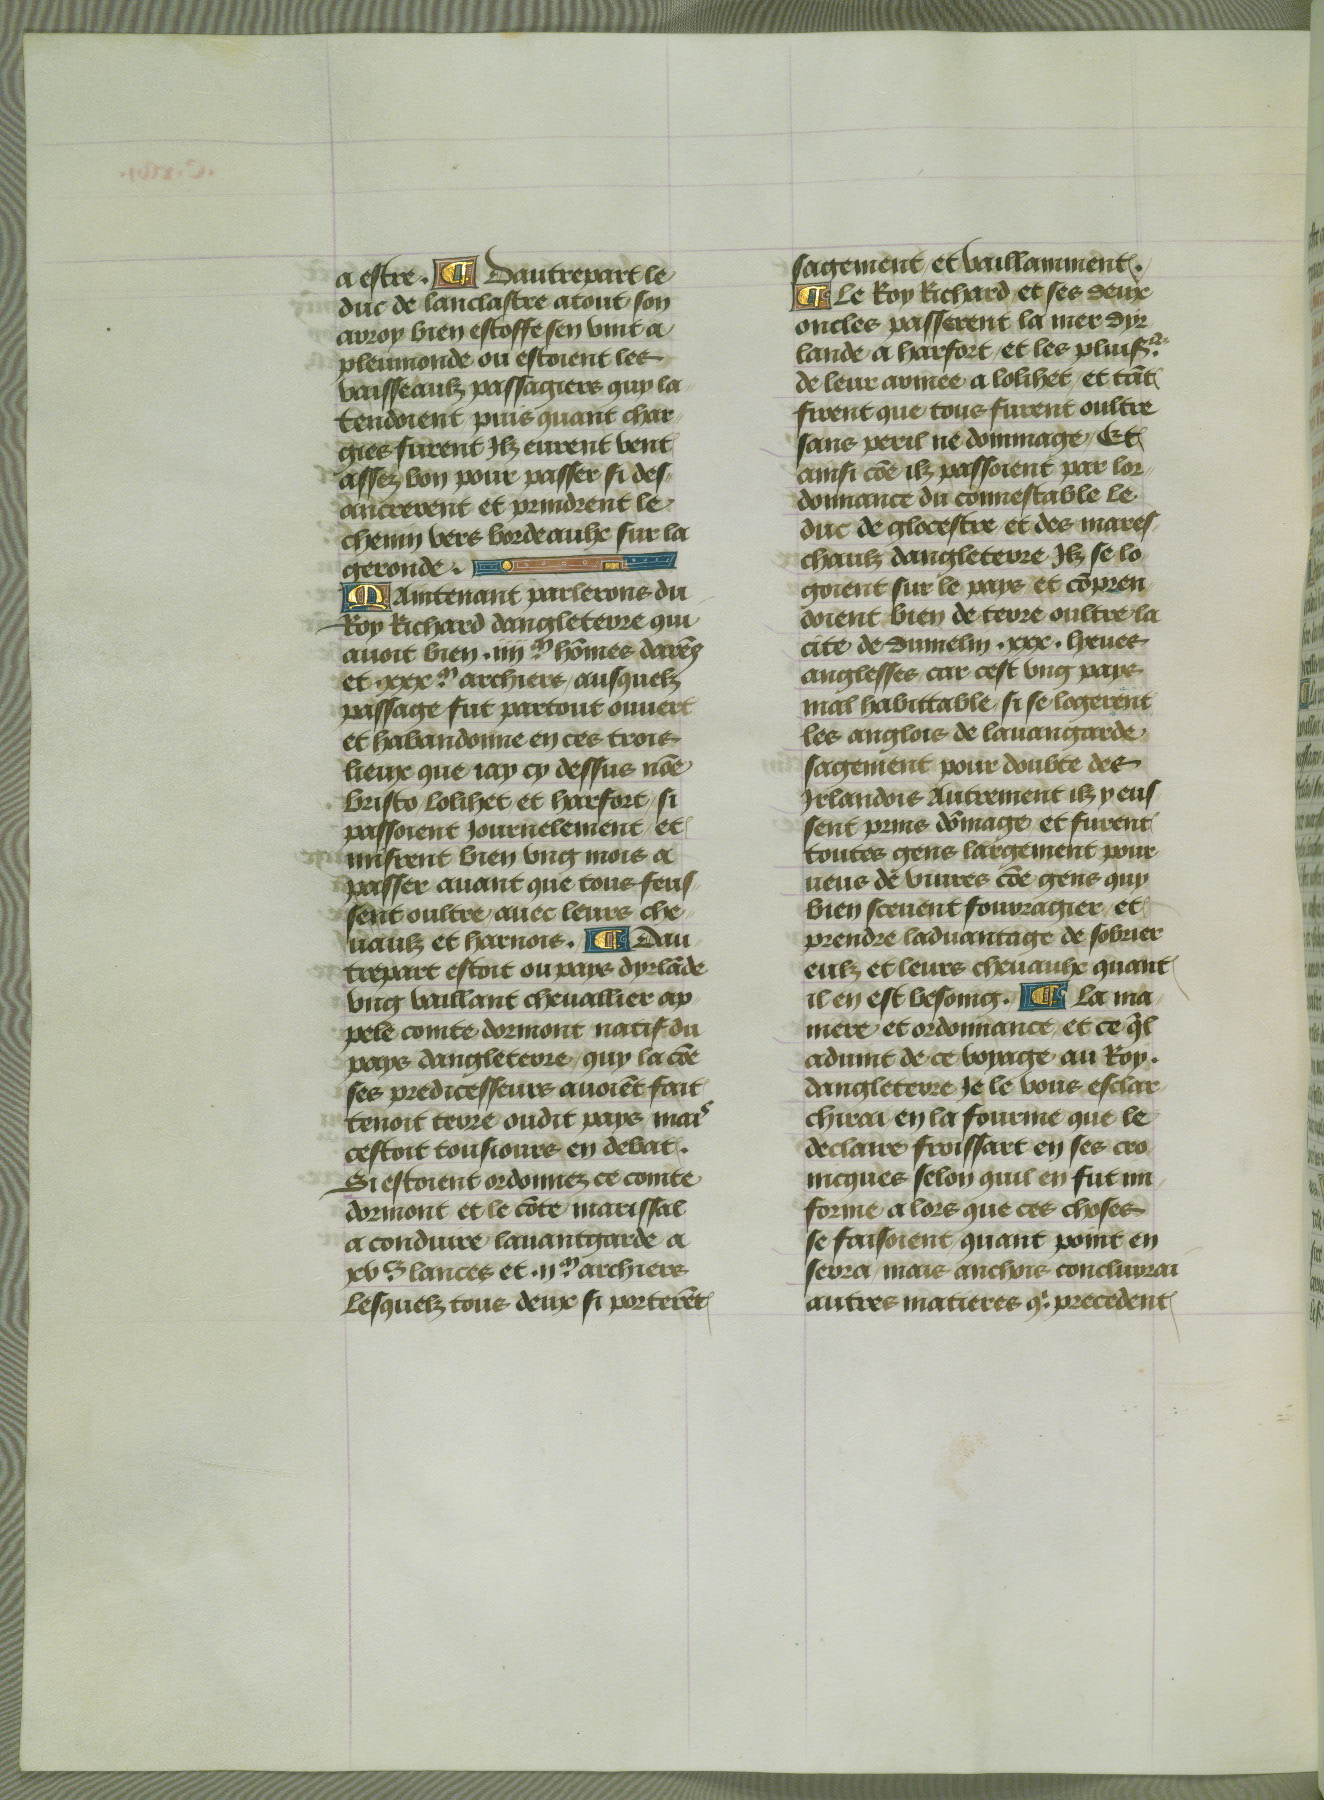 a estre. ¶ Dautrepart le
duc de lanclastre atout son
arroy bien estoffe sen vint a
pleumonde ou estoient les
vaisseaulz passagiers quy la
tendoient puis quant char
gies furent Ilz eurent vent
assez bon pour passer si des
ancrerent et prindrent le
chemin vers bordeaulx sur la
geronde.
Maintenant parlerons du
Roy Richard dangleterre qui
auoit bien .iiii.ᵐ hõmes darẽs
et .xxx.ᵐ archiers ausquelz
passage fut partout ouuert
et habandonne en ces trois
lieux que iay cy dessus nõe
bristo lolihet et harfort si
passoient Journelement et
misrent bien vng mois a
passer auant que tous feus
sent oultre auec leurs che
uaulz et harnois. ¶ Dau
trepart estoit ou pays dyrlãde
vng vaillant cheuallier ap
pele comte dormont natif du
pays dangleterre quy la cõe
ses predicesseurs auoiẽt fait
tenoit terre oudit pays maiˢ
cestoit tousiours en debat.
Si estoient ordonnez ce comte
dormont et le cõte marissal
a conduire lauantgarde a
xvᶜ lances et .ii.ᵐ archiers
Lesquelz tous deux si porterẽt
sagement et vaillamment.
¶ Le Roy Richard et ses deux
oncles passerent la mer dyr
lande a harfort et les pluiss.ᵃ
de leur armee a lolihet et tãt
firent que tous furent oultre
sans peril ne dommage Et
ainsi cõe ilz passoient par lor
donnance du connestable le
duc de glocestre et des mares
chaulz dangleterre Ilz se lo
goient sur le pays et cõpren
doient bien de terre oultre la
cite de dumelin .xxx. lieues
anglesses car cest vng pays
mal habittable si se logerent
les anglois de lauangarde
sagement pour doubte des
Irlandois Autrement ilz y eus
sent prins dõmage et furent
toutes gens largement pour
ueus de viures cõe gens quy
bien sceuent fourragier et
prendre laduantage de sobrier
eulz et leurs cheuaulx quant
il en est besoing. ¶ La ma
niere et ordonnance et ce q̃l
aduint de ce voyage au Roy.
dangleterre Je le vous esclar
chirai en la fourme que le
declaire froissart en ses cro
nicques selon quil en fut in
forme a lors que ces choses
se faisoient quant point en
sera mais anchois concluprai
autres matieres qⁱ precedent